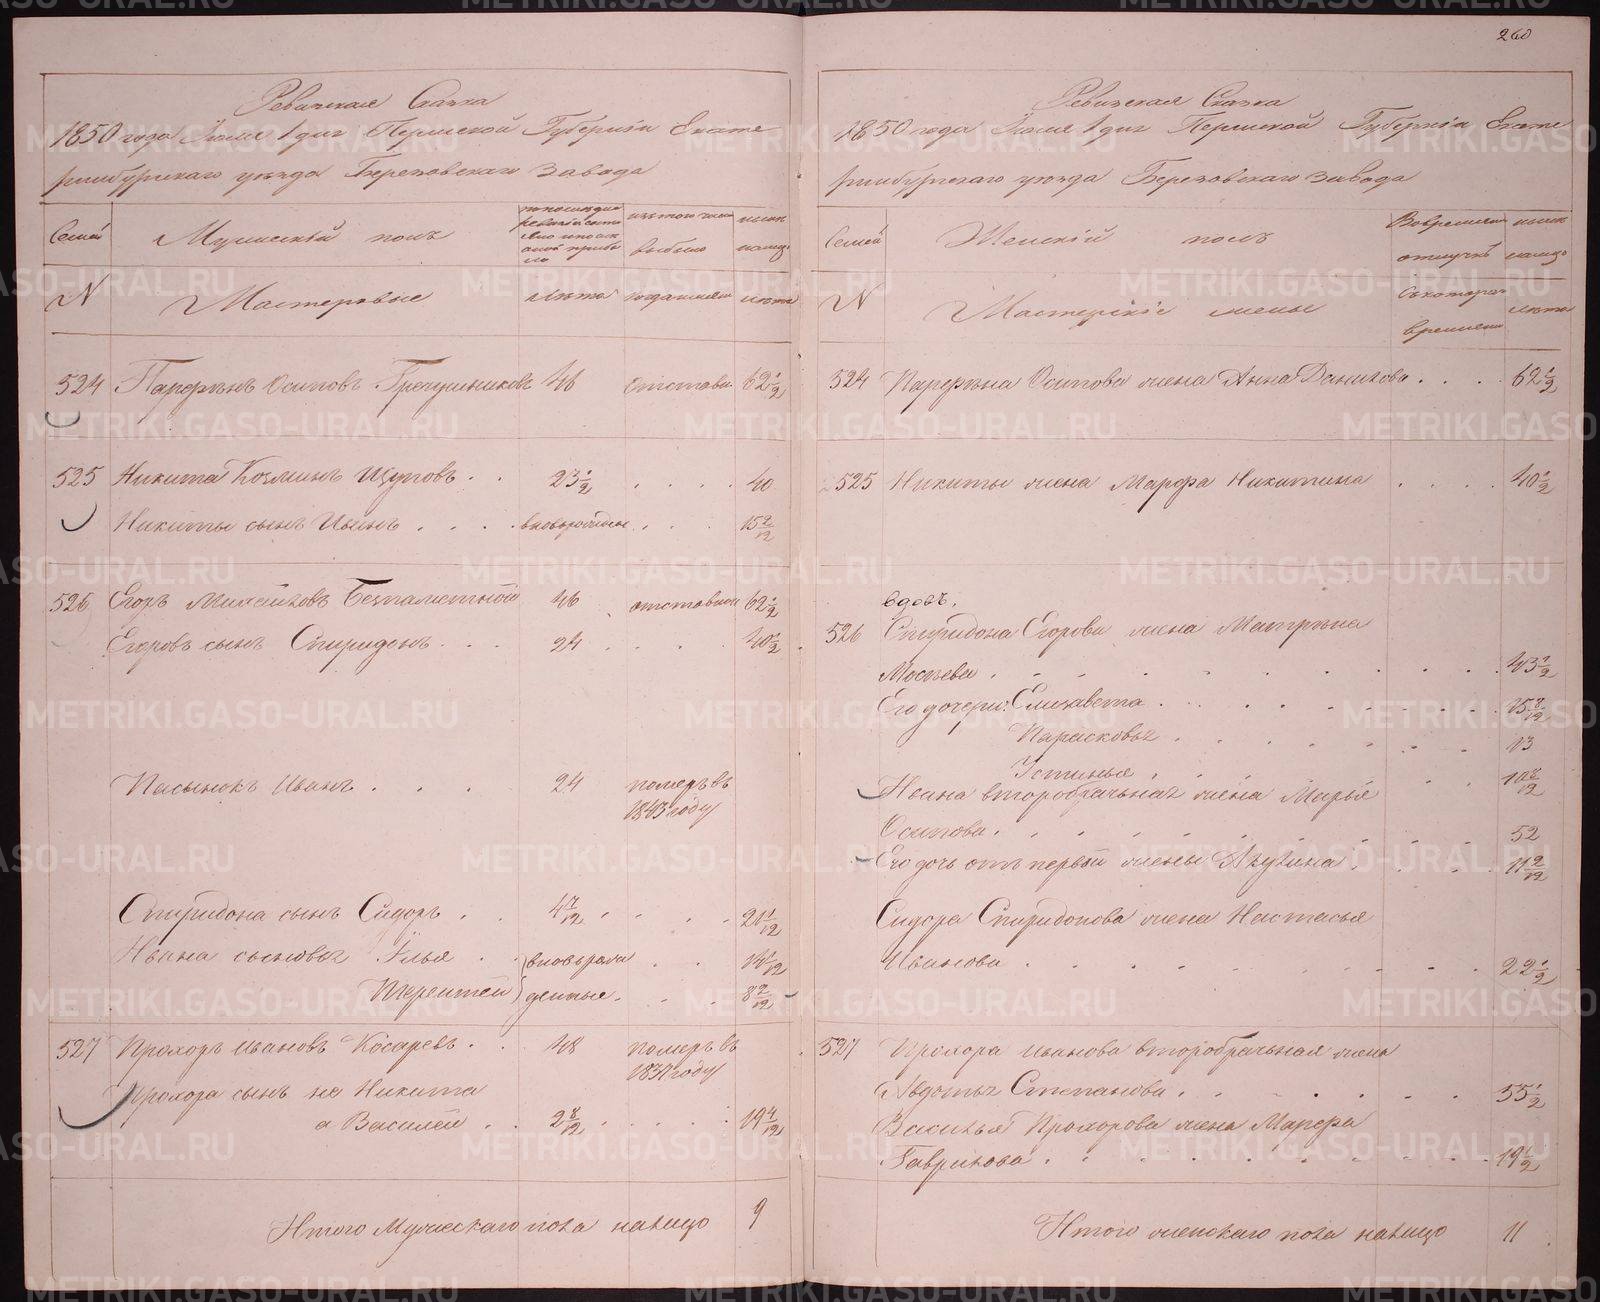 260
Ревизская Сказка
1850 года Июля 1 дня Пермской Губернiи Екате
ринбургскаго уезда Березовскаго завода
Семей
Мужескiй полъ
по последней ревизiи состояло и после оной прибыло
изъ того числа выбыло
ныне налицо
N
Мастеровые
лета
когда именно
лета
524 Парфенъ Осиповъ Гречушниковъ 46 отставн. 62 1/2
525 Никита Козминъ Щуповъ . . 23 1/2 . . . . 40
Никиты сынъ . . . . новорожден . . . 15 2/12
526 Егоръ Михайловъ Безпаметной 46 отставной 62 1/2
Егоровъ сынъ Спиридонъ . . . 24 . . . . 40 1/2
Пасынокъ Иванъ . . . . 24 померъ въ
1843 году
Спиридона сынъ Сидоръ . . 4 7/12 . . . . 21 1/12
Ивана сыновья Илья . . вновь рож . . 14 1/12
Терентей денные . . . 8 2/12
527 Прохоръ Ивановъ Косаревъ . . 48 померъ въ
1837 году
Прохора сынъ не Никита
а Василей . . 2 8/12 . . . . 19 4/12
Итого Мужескаго пола налицо 9
Ревизская Сказка
1850 года Июля 1 дня Пермской Губернiи Екате
ринбургскаго уезда Березовскаго завода
Семей
Женскiй полъ
Во временной отлучке
ныне налицо
N
Мастерскiе жены
Съ котораго времени
лета
524 Парфена Осипова жена Анна Данилова . . . . 62 1/2
525 Никиты жена Марфа Никитина . . . . 40 1/2
вдовъ.
526 Спиридона Егорова жена Матрена
Мосеева . . . . . . . . . 43 1/2
Его дочери: Елизавета . . . . . . . . 15 8/12
Парасковья . . . . . . . 13
Устинья . . . . 10 8/12
Ивана второбрачная жена Марья
Осипова . . . . . . . . . 52
Его дочь отъ первой жены Акулина . . . . 11 2/12
Сидора Спиридонова жена Настасья
Иванова . . . . . . . . . 22 1/2
527 Прохора Иванова второбрачная жена
Авдотья Степанова . . . . . . . 55 1/2
Василья Прохорова жена Марфа
Гаврилова . . . . . . . . . 19 1/2
Итого женскаго пола налицо 11
METRIKI.GASO-URAL.RU